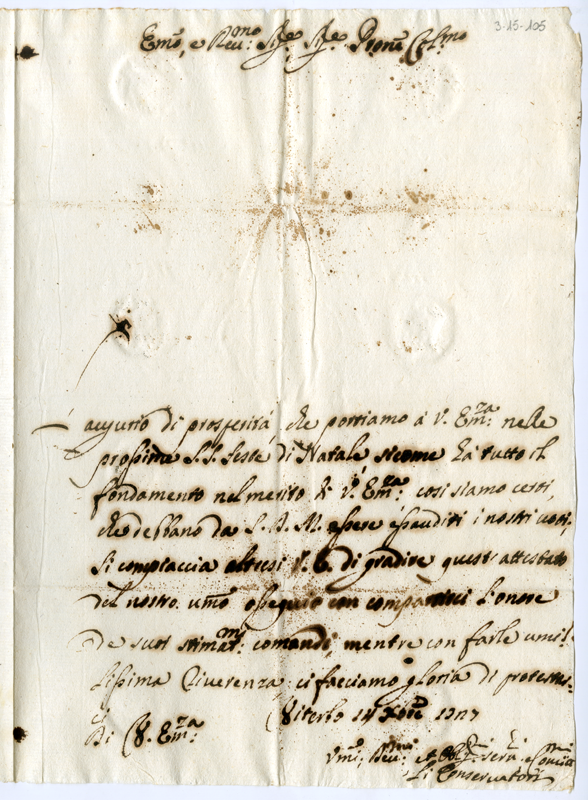 3-15-105
Emo, e Reu:mo Sig.e Sig.e Prone Col:mo
augurio di prosperità che portiamo à V. Em:za nelle
prossime S.S. feste di Natale sicome hà tutto il
fondamento nel merito di V. Em:za: cosi siamo certi,
che debbano da S. D. M. essere esauditi i nostri uoti,
Si compiaccia altresi V. E. di gradire quest' attestato
del nostro umo ossequio con compartirci l'onore
de suoi stimat:mi comandi, mentre con farle umi:
lissima riuerenza, ci facciamo gloria di protestar
Di V. Em:za
Viterbo 14 Xbre 1727
Umi, Deu:mi et Obl:mi seru:i
Li Conseruatori